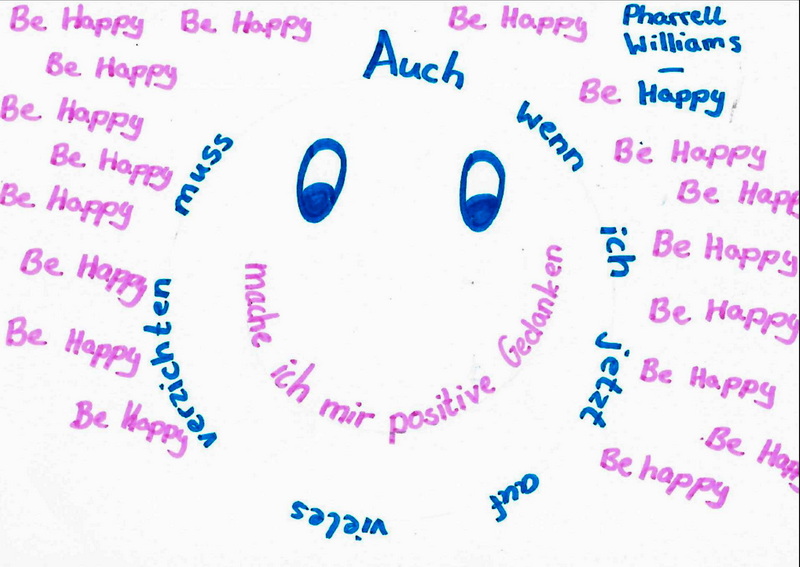 Be Happy
Be Happy
Be Happy
Pharrell
Williams
–
Be Happy
Be Happy
Be Happy
Be Happy
Be Happy
Be Happy
Be Happy
Be Happy
Be Happy
Be Happ
Be Happy
Be Happy
Be Happy
Be Happ
Be happy
Auch wenn ich jetzt auf vieles verzichten muss
mache ich mir positive Gedanken